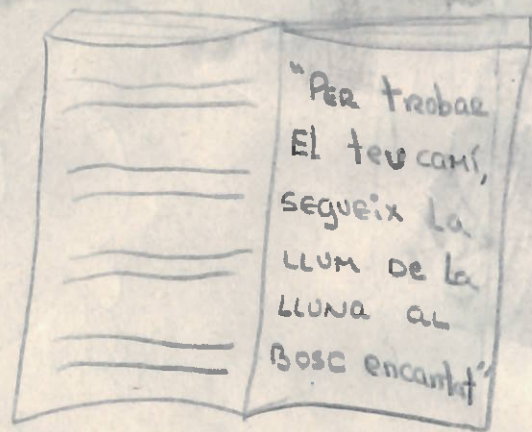 "PER trobar
El teu camí,
SEGUEiX La
LLUM DE La
LLUNA aL
BOSC encantat"